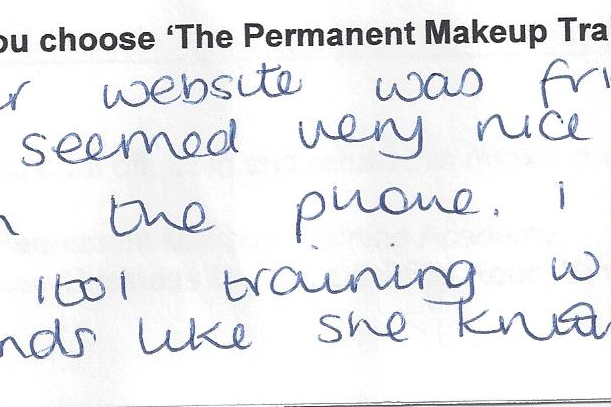 ou choose ‘The Permanent Makeup Tra
r website was fri
seemed very nice
n the phone. i
1to1 training w
nds like she